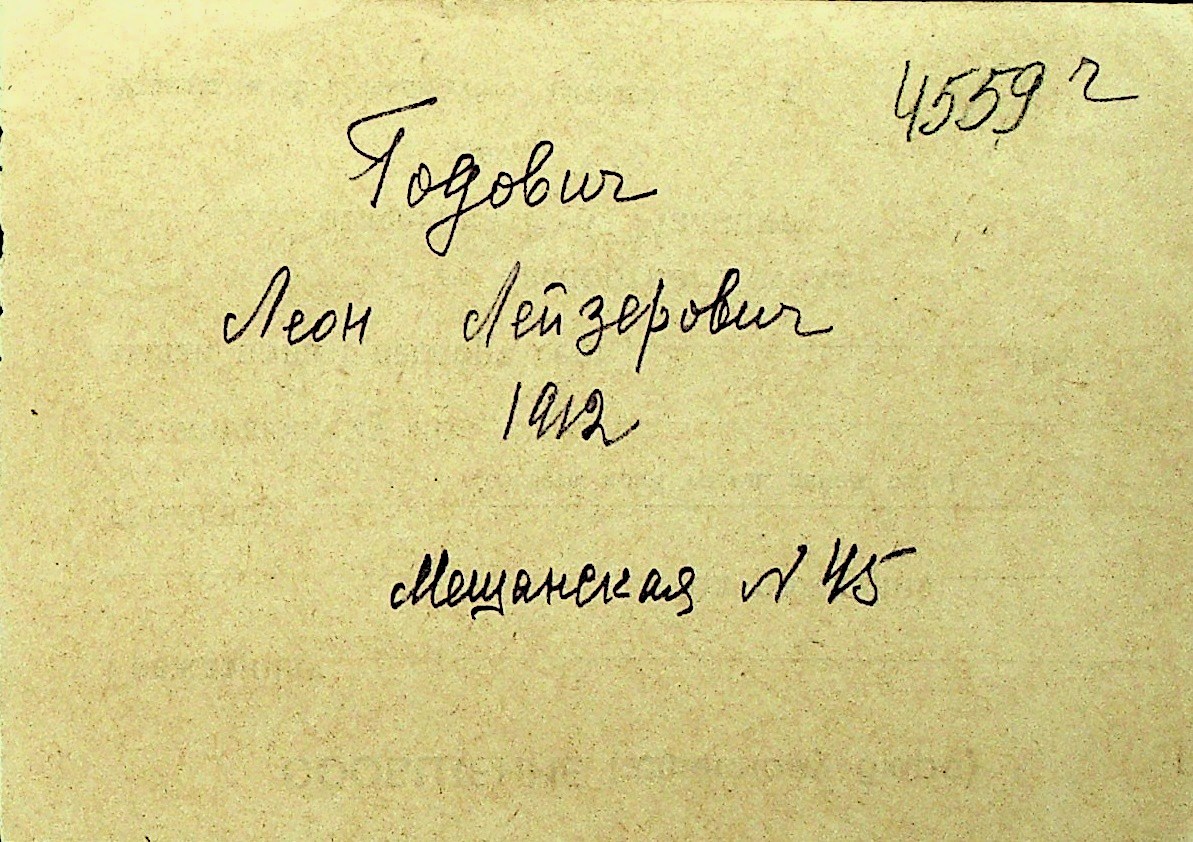 4559 г
Годович
Леон Лейзерович
1912
Мещанская N 45